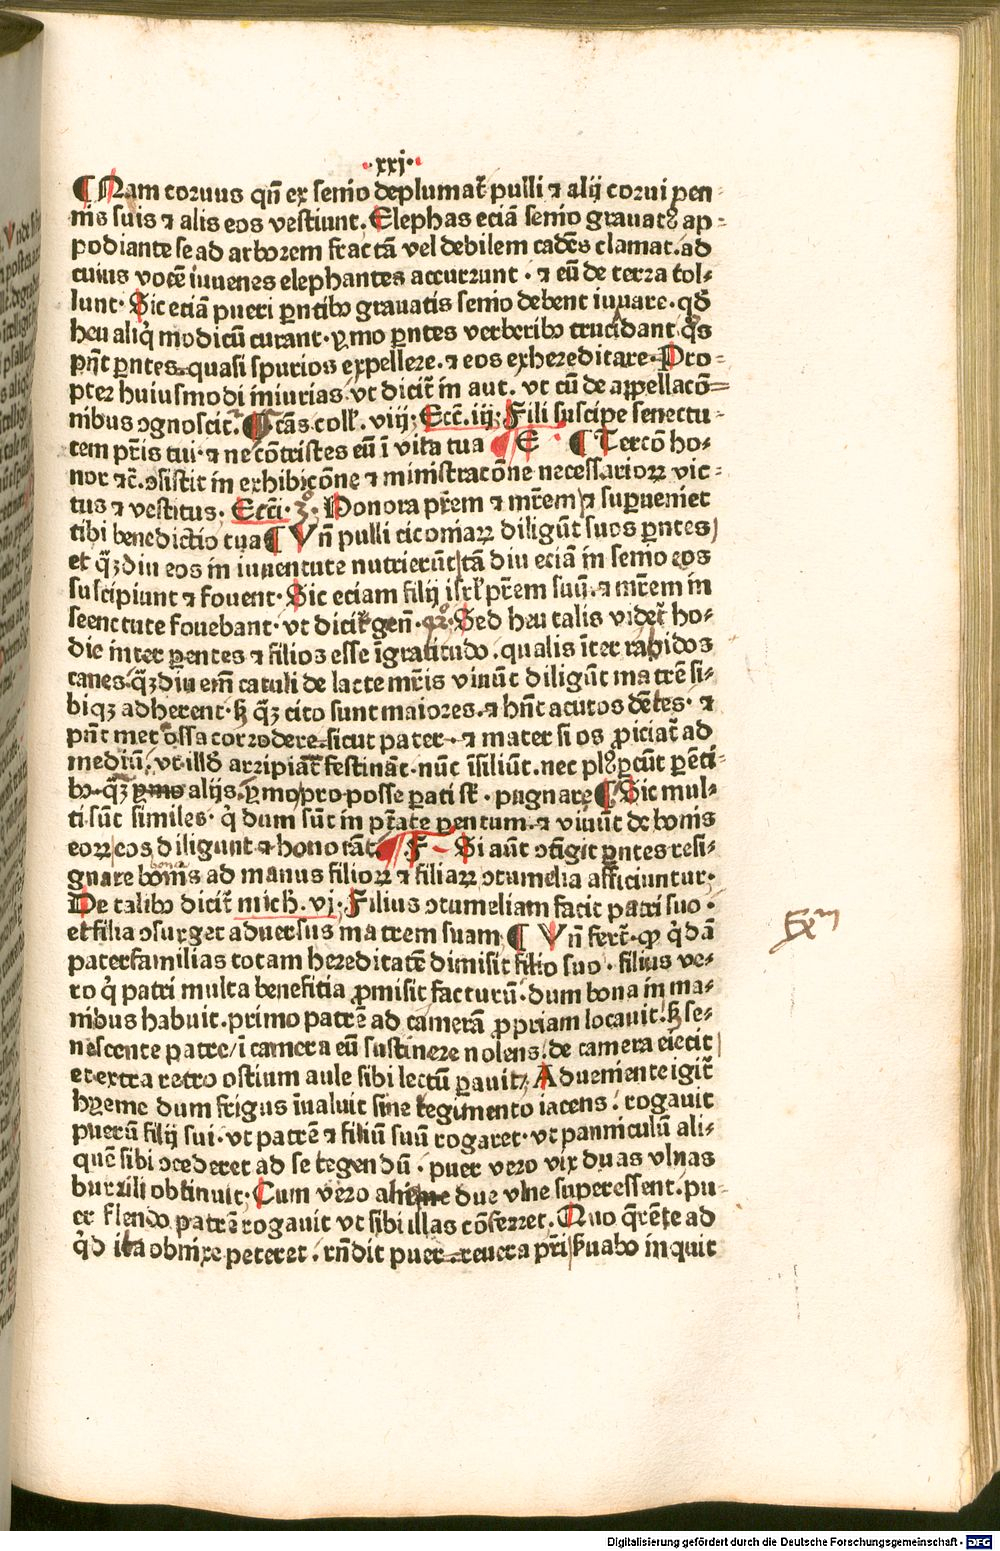 ·xxj·
¶ Nam coruus qñ ex senio deplumat̃ pulli ⁊ alij corui pen-
nis suis ⁊ alis eos vestiunt. Elephas eciã senio grauatꝰ ap-
podiante se ad arborem fractã vel debilem cadẽs clamat. ad
cuius vocẽ iuuenes elephantes accurrunt · ⁊ eũ de terra tol-
lunt· Sic eciã pueri pñtibꝰ grauatis senio debent iuuare. qđ
heu aliq̇ modicũ curant· ymo pñtes verberibꝰ trucidant. q̇s
pñt pñtes quasi spurios expellere. ⁊ eos exhereditare· Pro-
pter huiusmodi iniurias vt dicit̃ in aut. vt cũ de appellacõ-
nibus ꝯgnoscit̃. ¶ tãs coll. viij; Ecc̃. iij; Fili suscipe senectu-
tem pr̃is tui· ⁊ ne cõtristes eũ ĩ vita tua ¶ E · ¶ Tercõ ho-
nor ⁊c̃. ꝯsistit in exhibicõne ⁊ ministracõne necessarioꝝ vic-
tus ⁊ vestitus. Ecc̃i. 3°. Honora pr̃em ⁊ mr̃em ⁊ supueniet
tibi benedictio tua ¶ Vñ pulli ciconiaꝝ diligũt suos pñtes
et q̃ʒdiu eos in iuuentute nutrierũt tã diu eciã in senio eos
suscipiunt ⁊ fouent· Sic eciam filij isrł pr̃em suũ. ⁊ mr̃em in
seenctute fouebant· vt dicit̃ geñ. Sed heu talis videt̃ ho-
die inter parentes ⁊ filios esse ĩgratitudo. qualis ĩter rabidos
canes. q̃ʒdiu em̃ catuli de lacte mr̃is viuũt diligũt matrẽ si-
biqʒ adherent· ꝫ q̃ʒ cito sunt maiores. ⁊ hñt acutos dẽtes· ⁊
pñt met ossa corrodere. sicut pater · ⁊ mater si os proiciat̃ ad
mediũ. vt illđ arripiãt festinãt· nũc ĩsiliũt. nec plꝰ pcũt pẽti-
bꝰ· q̃ʒ alijs. ymo pro posse pati st̃ · pugnare ¶ Sic mul-
ti sũt similes· q̇ dum sũt in pr̃ate pentum. ⁊ viuũt de bonis
eoꝝ eos diligunt ⁊ honorãt. ¶ F Si aũt ꝯtigit pñtes resi-
gnare bonis ad manus filioꝝ ⁊ filiaꝝ ꝯtumelia afficiuntur·
De talibꝰ dicit̃ mich. vj· Filius ꝯtumeliam facit patri suo ·
et filia ꝯsurget aduersus matrem suam ¶ Vñ fert̃· ꝙ q̇dã
paterfamilias totam hereditatẽ dimisit filio suo · filius ve-
ro q̇ patri multa benefitia promisit facturũ· dum bona in ma-
nibus habuit. primo patrẽ ad camerã propriam locauit. ꝫ se-
nescente patre ĩ camera eũ sustinere nolens. de camera eiecit
et extra retro ostium aule sibi lectũ pauit; Adueniente igit̃
hyeme dum frigus ĩualuit sine tegimento iacens. rogauit
puerũ filij sui· vt patrẽ ⁊ filiũ suũ rogaret· vt panniculũ ali-
quẽ sibi ꝯcederet ad se tegendũ · puer vero vix duas vlnas
burzili obtinuit. Cum vero due vlne superessent. pu-
er flendo patrẽ rogauit vt sibi illas cõferret. Quo q̃rẽte ad
q̇d ita obnixe peteret. rñdit puer. reuera pr̃i ẜuabo inquit
Exᵐ
Digitalisierung gefördert durch die Deutsche Forschungsgemeinschaft - DFG